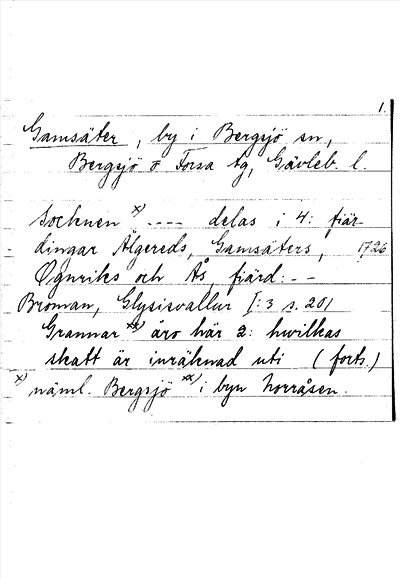 1.
Gamsäter, by i Bergsjö sn,
Bergsjö o Forsa tg, Gävleb. l.
Socknen x) ---- delas i 4: fiär-
dingar Älgereds, Gamsäters, 1726
Øgnriks och Ås fiärd: --
Broman, Glysisvallur I:3 s. 201
Grannar xx) äro här 2: hwilkas
skatt är inräknad uti (forts.)
x) näml. Bergsjö xx) i byn Norråsen.